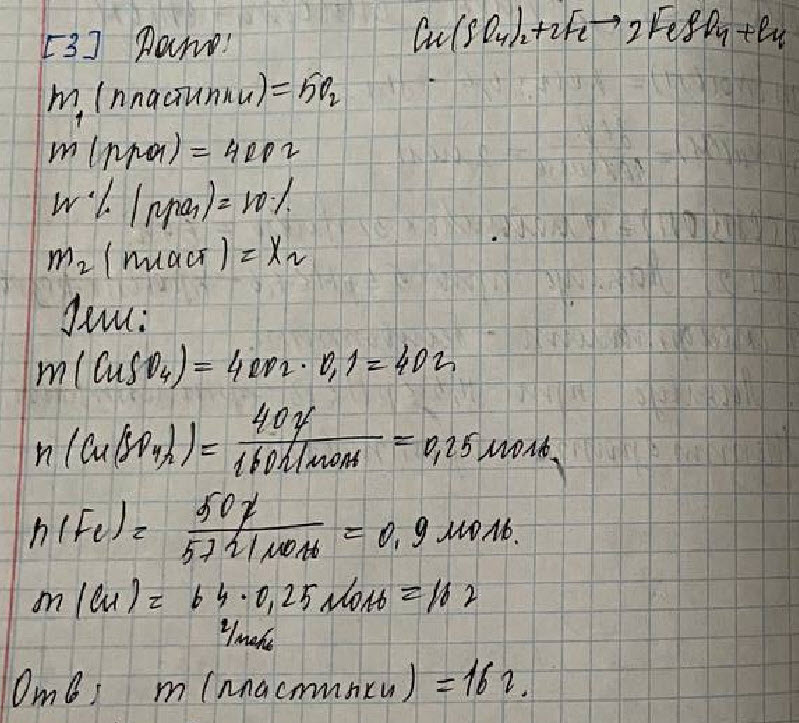 [3] Дано: Cu(SO4)2+2Fe→2FeSO4+Cu
m1(пластинки)=50г
m(рра)=400г
w% (рра)=10%
m2(пласт)=Xг
Реш:
m(CuSO4)=400г·0,1=40г
n(Cu(SO4)2)= 40г/160г/моль =0,25моль
n(Fe)= 50г/57г/моль = 0,9моль.
m(Cu)= 64г/моль·0,25моль=16г
Отв: m(пластинки)=16г.